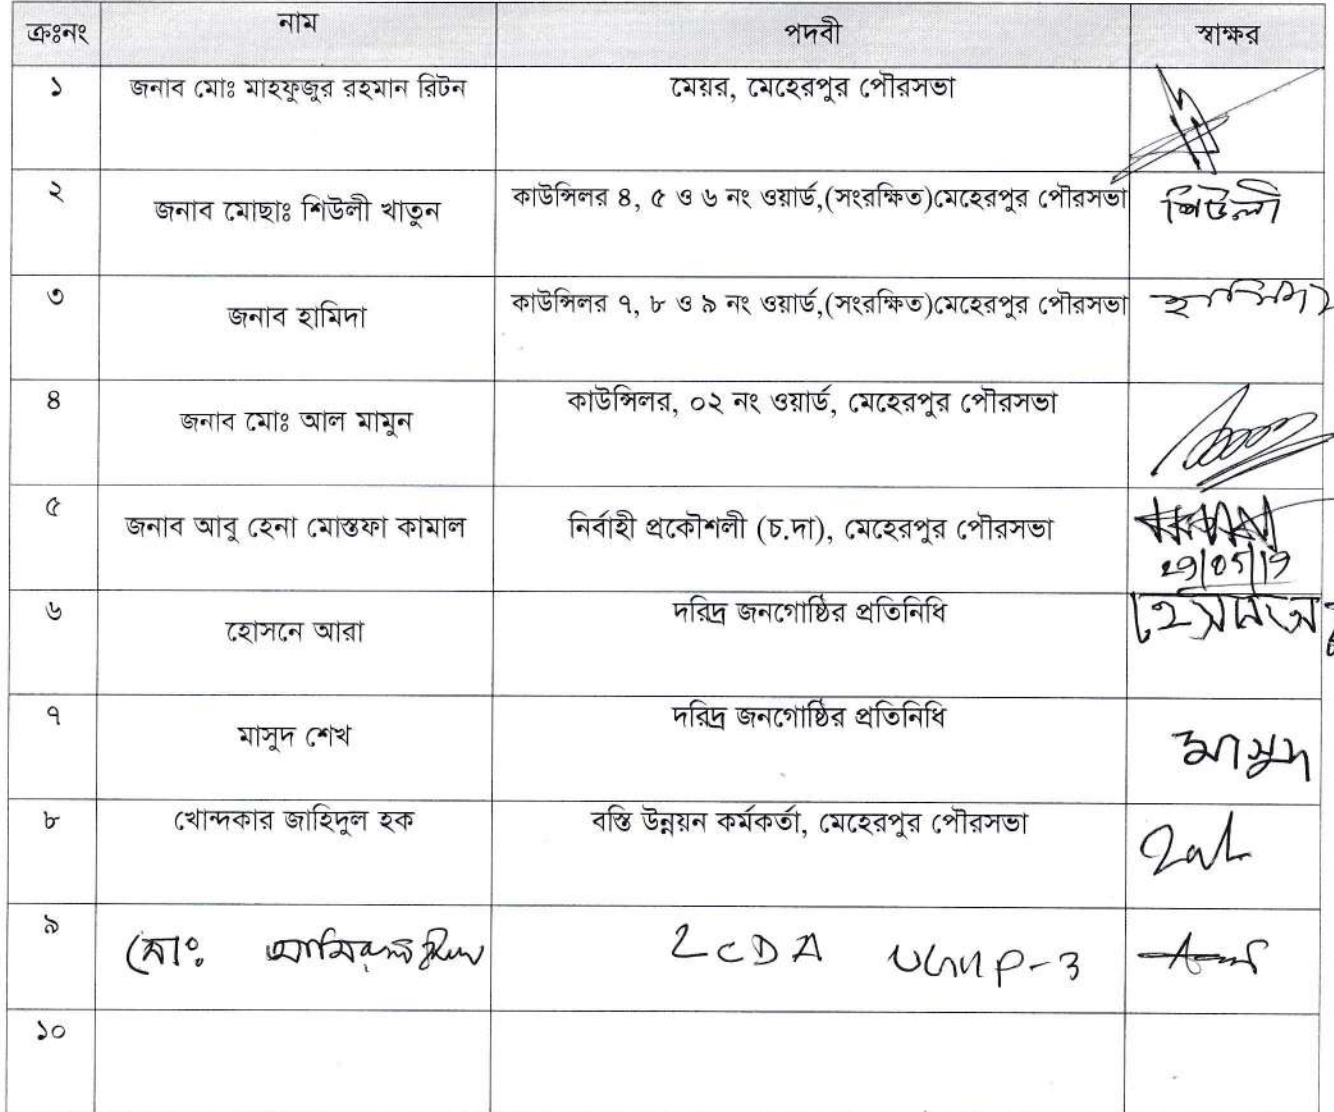 ক্রঃনং নাম পদবী স্বাক্ষর
১ জনাব মোঃ মাহফুজুর রহমান রিটন মেয়র, মেহেরপুর পৌরসভা
২ জনাব মোছাঃ শিউলী খাতুন কাউন্সিলর ৪, ৫ ও ৬ নং ওয়ার্ড,(সংরক্ষিত)মেহেরপুর পৌরসভা শিউলী
৩ জনাব হামিদা কাউন্সিলর ৭, ৮ ও ৯ নং ওয়ার্ড,(সংরক্ষিত)মেহেরপুর পৌরসভা হামিদা
৪ জনাব মোঃ আল মামুন কাউন্সিলর, ০২ নং ওয়ার্ড, মেহেরপুর পৌরসভা
৫ জনাব আবু হেনা মোস্তফা কামাল নির্বাহী প্রকৌশলী (চ.দা), মেহেরপুর পৌরসভা
29/05/19
৬ হোসনে আরা দরিদ্র জনগোষ্ঠির প্রতিনিধি
৭ মাসুদ শেখ দরিদ্র জনগোষ্ঠির প্রতিনিধি মাসুদ
৮ খোন্দকার জাহিদুল হক বস্তি উন্নয়ন কর্মকর্তা, মেহেরপুর পৌরসভা
৯ মোঃ
১০